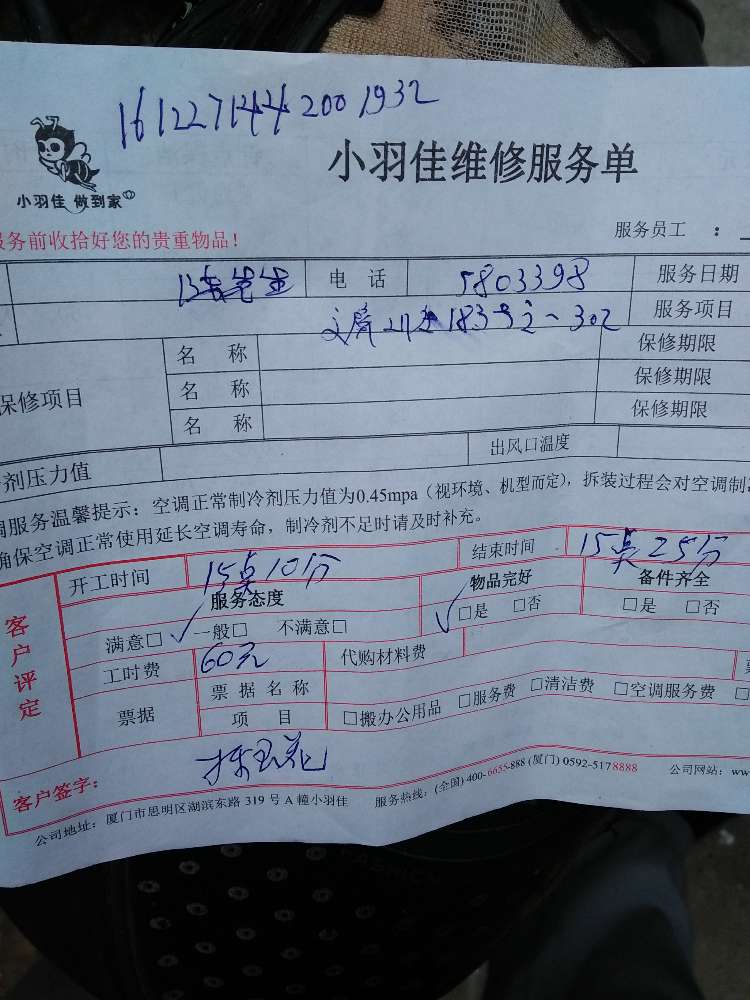 161227144 2001932
小羽佳维修服务单
小羽佳 做到家
服务前收拾好您的贵重物品！
服务员工 ：
先生 电 话 5803398 服务日期
183号之一302 服务项目
保修项目 名 称 保修期限
名 称 保修期限
名 称 保修期限
剂压力值 出风口温度
调服务温馨提示：空调正常制冷剂压力值为0.45mpa（视环境、机型而定），拆装过程会对空调制
确保空调正常使用延长空调寿命，制冷剂不足时请及时补充。
客户评定
开工时间 15点10分 结束时间 15点25分
服务态度 物品完好 备件齐全
满意□ 一般□ 不满意□ □是 □否 □是 □否
工时费 60元 代购材料费
票据 票 据 名 称
项 目 □搬办公用品 □服务费 □清洁费 □空调服务费 □
客户签字：
公司地址：厦门市思明区湖滨东路 319 号 A 幢小羽佳 服务热线：(全国) 400-6655-888 (厦门) 0592-5178888 公司网站：ww